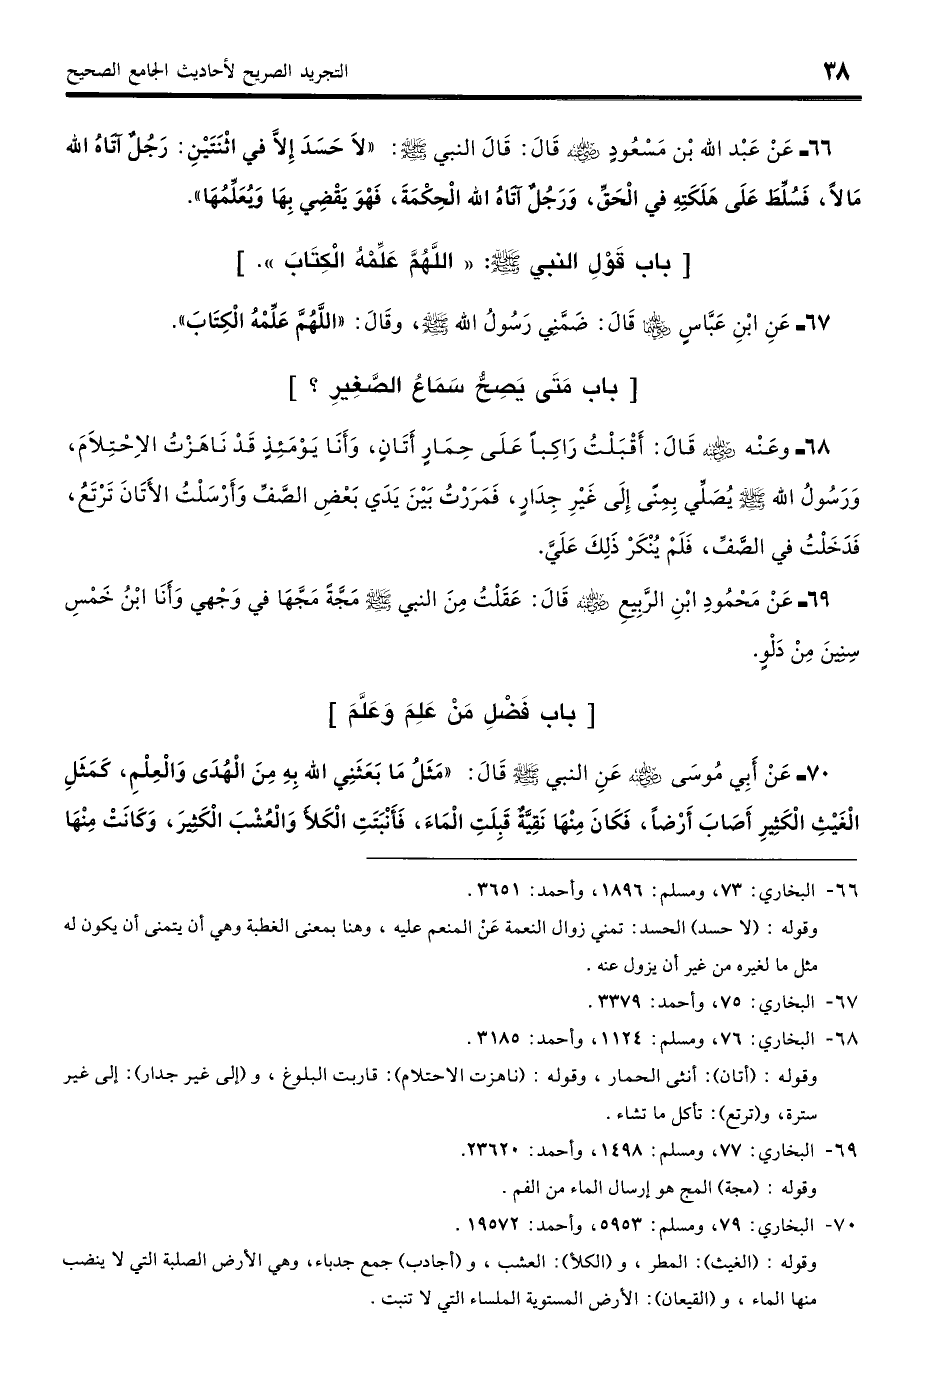 ٣٨
التجريد الصريح لأحاديث الجامع الصحيح
٦٦ـ عَنْ عَبْد الله بْن مَسْعُودٍ رضي الله عنه قَالَ: قَالَ النبي ﷺ: «لاَ حَسَدَ إِلاَّ في اثْنَتَيْنِ: رَجُلٌ آتَاهُ الله
مَالاً، فَسُلِّطَ عَلَى هَلَكَتِهِ في الْحَقِّ، وَرَجُلٌ آتَاهُ الله الْحِكْمَةَ، فَهْوَ يَقْضِي بِهَا وَيُعَلِّمُهَا».
[ باب قَوْلِ النبي ﷺ: « اللَّهُمَّ عَلِّمْهُ الْكِتَابَ ». ]
٦٧ـ عَنِ ابْنِ عَبَّاسٍ رضي الله عنهما قَالَ: ضَمَّنِي رَسُولُ الله ﷺ، وقَالَ: «اللَّهُمَّ عَلِّمْهُ الْكِتَابَ».
[ باب مَتَى يَصِحُّ سَمَاعُ الصَّغِيرِ ؟ ]
٦٨ـ وعَنْه رضي الله عنه قَالَ: أَقْبَلْتُ رَاكِباً عَلَى حِمَارٍ أَتَانٍ، وَأَنَا يَوْمَئِذٍ قَدْ نَاهَزْتُ الاِحْتِلاَمَ،
وَرَسُولُ الله ﷺ يُصَلِّي بِمِنًى إِلَى غَيْرِ جِدَارٍ، فَمَرَرْتُ بَيْنَ يَدَي بَعْضِ الصَّفِّ وَأَرْسَلْتُ الأَتَانَ تَرْتَعُ،
فَدَخَلْتُ في الصَّفِّ، فَلَمْ يُنْكَرْ ذَلِكَ عَلَيَّ.
٦٩ـ عَنْ مَحْمُودِ ابْنِ الرَّبِيعِ رضي الله عنه قَالَ: عَقَلْتُ مِنَ النبي ﷺ مَجَّةً مَجَّهَا في وَجْهي وَأَنَا ابْنُ خَمْسِ
سِنِينَ مِنْ دَلْوٍ.
[ باب فَضْلِ مَنْ عَلِمَ وَعَلَّمَ ]
٧٠ـ عَنْ أَبِي مُوسَى رضي الله عنه عَنِ النبي ﷺ قَالَ: «مَثَلُ مَا بَعَثَنِي الله بِهِ مِنَ الْهُدَى وَالْعِلْمِ، كَمَثَلِ
الْغَيْثِ الْكَثِيرِ أَصَابَ أَرْضاً، فَكَانَ مِنْهَا نَقِيَّةٌ قَبِلَتِ الْمَاءَ، فَأَنْبَتَتِ الْكَلأَ وَالْعُشْبَ الْكَثِيرَ، وَكَانَتْ مِنْهَا
٦٦- البخاري: ٧٣، ومسلم: ١٨٩٦، وأحمد: ٣٦٥١.
وقوله : (لا حسد) الحسد: تمني زوال النعمة عَنْ المنعم عليه ، وهنا بمعنى الغطبة وهي أن يتمنى أن يكون له
مثل ما لغيره من غير أن يزول عنه .
٦٧- البخاري: ٧٥، وأحمد: ٣٣٧٩.
٦٨- البخاري: ٧٦، ومسلم: ١١٢٤، وأحمد: ٣١٨٥.
وقوله : (أتان): أنثى الحمار ، وقوله : (ناهزت الاحتلام): قاربت البلوغ ، و (إلى غير جدار): إلى غير
سترة، و(ترتع): تأكل ما تشاء .
٦٩- البخاري: ٧٧، ومسلم: ١٤٩٨، وأحمد: ٢٣٦٢٠.
وقوله : (مجة) المج هو إرسال الماء من الفم .
٧٠- البخاري: ٧٩، ومسلم: ٥٩٥٣، وأحمد: ١٩٥٧٢ .
وقوله : (الغيث): المطر ، و (الكلأ): العشب ، و (أجادب) جمع جدباء، وهي الأرض الصلبة التي لا ينضب
منها الماء ، و (القيعان): الأرض المستوية الملساء التي لا تنبت .